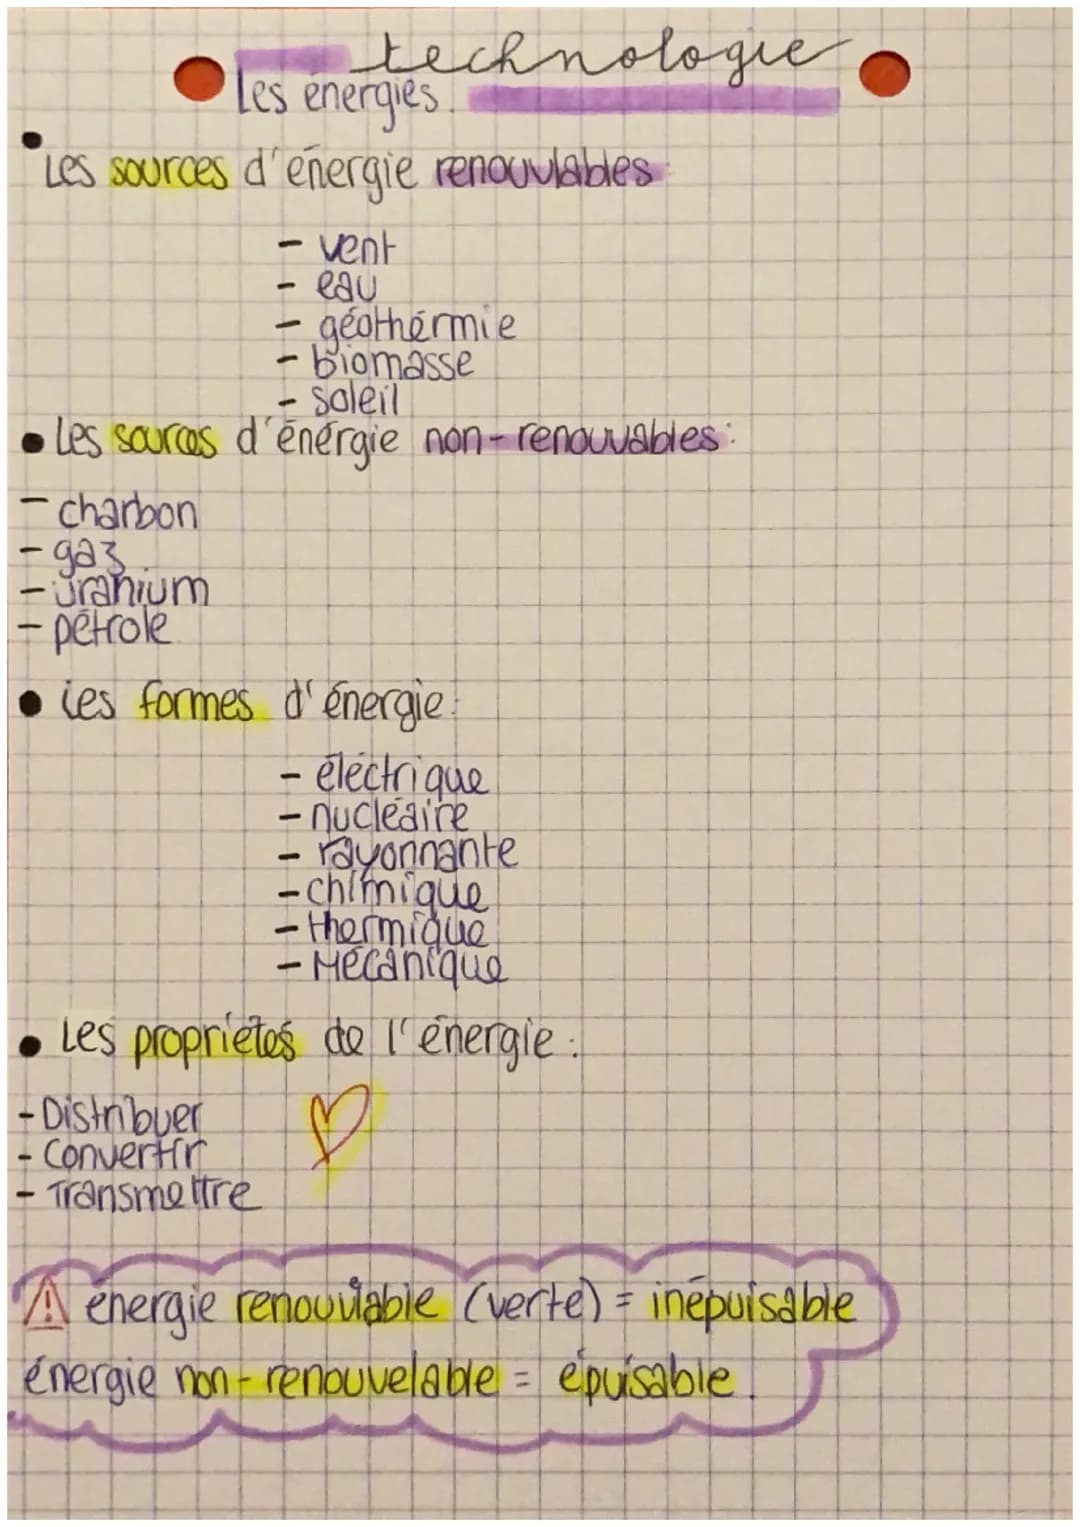 technologie
Les énergies.
Les sources d'énergie renouvlables:
- vent
- eau
- géothérmie
- biomasse
- soleil
Les sources d'énérgie non-renouvables:
- charbon
- gaz
- uranium
- pétrole
Les formes d'énergie:
- éléctrique
- nucléaire
- rayonnante
- chimique
- thermique
- Mécanique
Les propriétés de l'énergie:
- Distribuer
- Convertir
- Transmettre
énergie renouvlable (verte) = inépuisable
énergie non-renouvelable = épuisable.